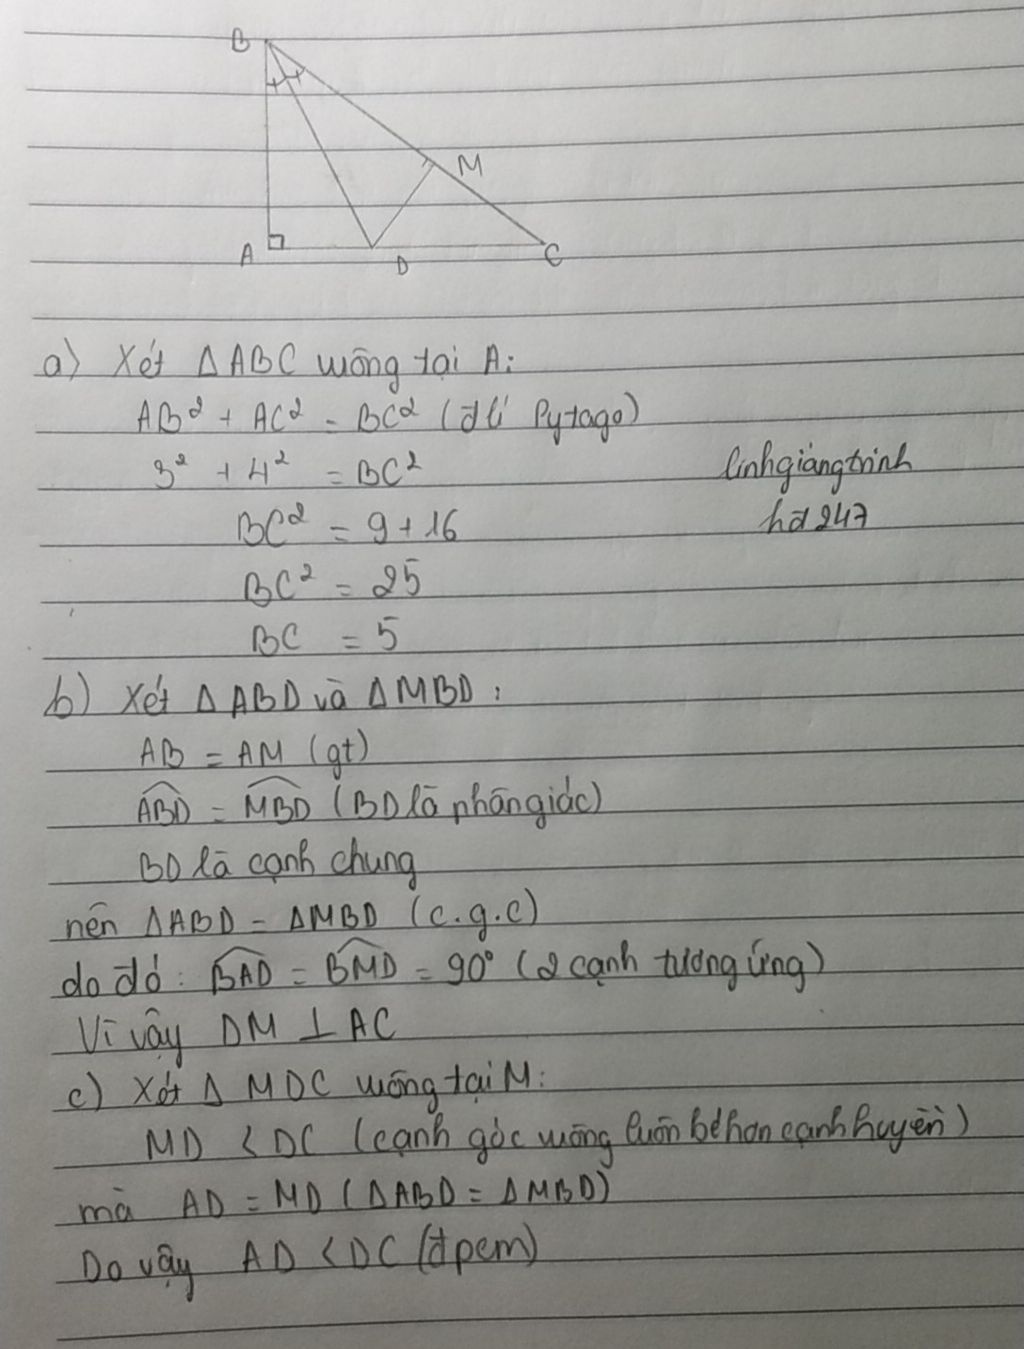 B
M
A
D
C
a) Xét ΔABC vuông tại A:
AB² + AC² = BC² (đlí Pytago)
3² + 4² = BC²
linhgiangtrinh
BC² = 9 + 16
hd247
BC² = 25
BC = 5
b) Xét ΔABD và ΔMBD:
AB = AM (gt)
ABD̂ = MBD̂ (BD là phân giác)
BD là cạnh chung
nên ΔABD = ΔMBD (c.g.c)
do đó: BAD̂ = BMD̂ = 90° (2 cạnh tương ứng)
Vì vậy DM ⊥ AC
c) Xét Δ MDC vuông tại M:
MD < DC (cạnh góc vuông luôn bé hơn cạnh huyền)
mà AD = MD (ΔABD = ΔMBD)
Do vậy AD < DC (đpcm)